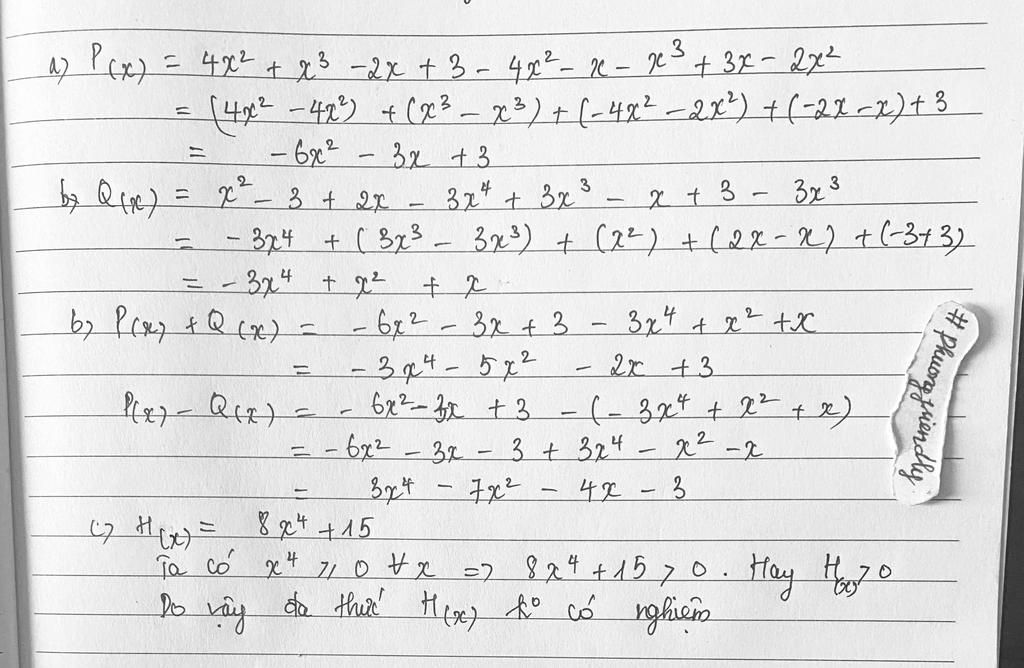 a) P(x) = 4x² + x³ - 2x + 3 - 4x² - x - x³ + 3x - 2x²
= (4x² - 4x²) + (x³ - x³) + (-4x² - 2x²) + (-2x - x) + 3
= - 6x² - 3x + 3
b) Q(x) = x² - 3 + 2x - 3x⁴ + 3x³ - x + 3 - 3x³
= - 3x⁴ + (3x³ - 3x³) + (x²) + (2x - x) + (-3+3)
= - 3x⁴ + x² + x
b) P(x) + Q(x) = - 6x² - 3x + 3 - 3x⁴ + x² + x
= - 3x⁴ - 5x² - 2x + 3
P(x) - Q(x) = - 6x² - 3x + 3 - (- 3x⁴ + x² + x)
= - 6x² - 3x - 3 + 3x⁴ - x² - x
= 3x⁴ - 7x² - 4x - 3
c) H(x) = 8x⁴ + 15
Ta có x⁴ ⩾ 0 ∀x => 8x⁴ + 15 > 0. Hay H(x) > 0
Do vậy đa thức H(x) k° có nghiệm
#phuongfriendly